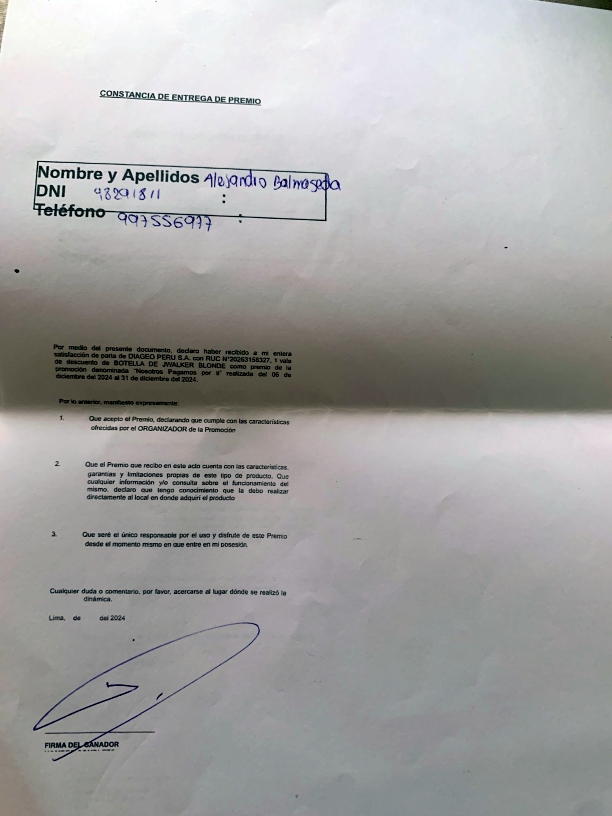 CONSTANCIA DE ENTREGA DE PREMIO
Nombre y Apellidos Alejandro Balmaseda
DNI 48291811 :
Teléfono 997556977 :
Por medio del presente documento, declaro haber recibido a mi entera
satisfacción de parte de DIAGEO PERU S.A. con RUC N°20263158327, 1 vale
de descuento de BOTELLA DE JWALKER BLONDE como premio de la
promoción denominada "Nosotros Pagamos por ti" realizada del 06 de
diciembre del 2024 al 31 de diciembre del 2024.
Por lo anterior, manifiesto expresamente:
1. Que acepto el Premio, declarando que cumple con las características
ofrecidas por el ORGANIZADOR de la Promoción
2. Que el Premio que recibo en este acto cuenta con las características,
garantías y limitaciones propias de este tipo de producto. Que
cualquier información y/o consulta sobre el funcionamiento del
mismo, declaro que tengo conocimiento que la debo realizar
directamente al local en donde adquirí el producto
3. Que seré el único responsable por el uso y disfrute de este Premio
desde el momento mismo en que entre en mi posesión.
Cualquier duda o comentario, por favor, acercarse al lugar dónde se realizó la
dinámica.
Lima, de del 2024
FIRMA DEL GANADOR